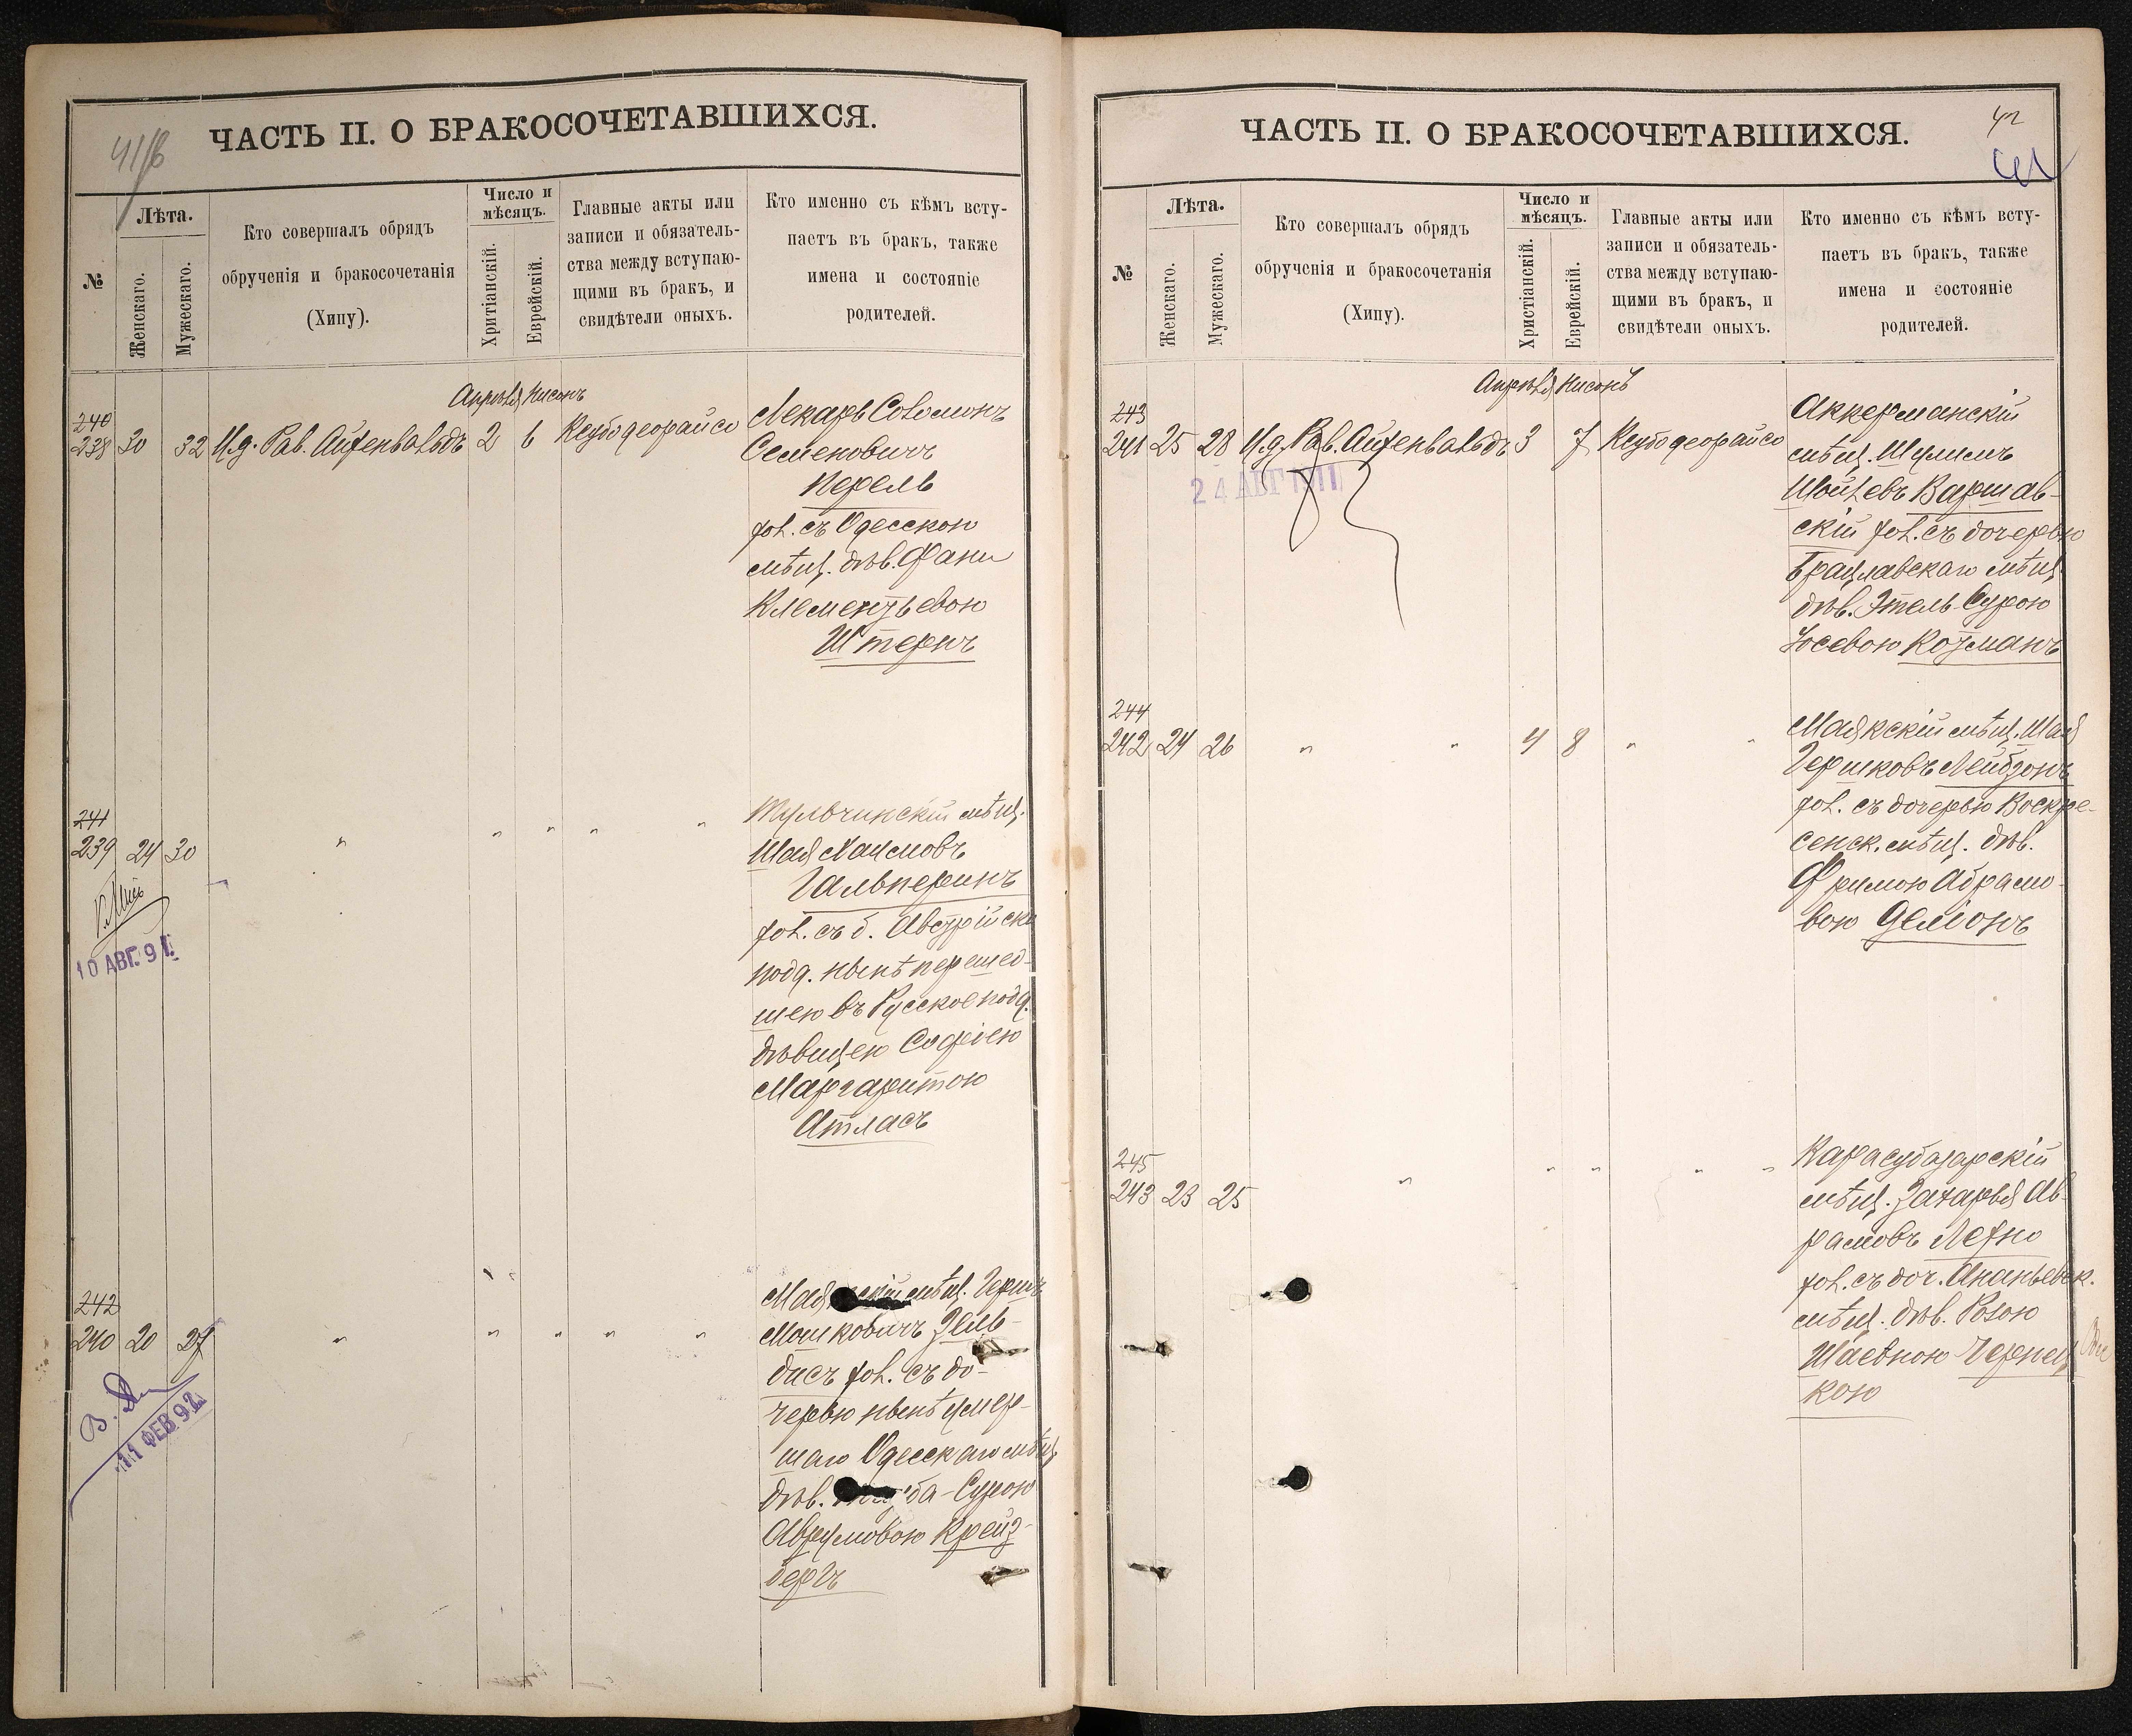 41/б
ЧАСТЬ II. О БРАКОСОЧЕТАВШИХСЯ.
№
Лѣта.
Женскаго.
Мужескаго.
Кто совершалъ обрядъ
обрученія и бракосочетанія
(Хипу).
Число и
мѣсяцъ.
Хритіанскій.
Еврейскій.
Главные акты или
записи и обязатель-
ства между вступаю-
щими въ бракъ, и
свидѣтели оныхъ.
Кто именно съ кѣмъ всту-
паетъ въ бракъ, также
имена и состояніе
родителей.
Апрѣля Нисонъ
240
238 30 32 И.д. Рав. Айхенвальдъ 2 6 Ксубо деорайсо
Лекарь Соломонъ
Семеновичъ
Перель
хол. съ Одесскою
мѣщ. дѣв. Фани
Клементьевою
Штернъ
241
239 24 30 " " " " "
10 АВГ. 91.
Тульчинскій мѣщ.
Шая Хаимовъ
Гальперинъ
хол. съ б. Австрійск.
подд. нынѣ перешед-
шею въ Русское подд.
дѣвицею Софіею
Маргаритою
Атласъ
242
240 20 27 " " " " "
11 ФЕВ. 92.
Маякскій мѣщ. Гершъ
Мошковичъ Зельв-
дисъ хол. съ до-
черью нынѣ умер-
шаго Одесскаго мѣщ.
дѣв. -Сурою
Аврумовою Крейз-
бергъ
ЧАСТЬ II. О БРАКОСОЧЕТАВШИХСЯ.
42
№
Лѣта.
Женскаго.
Мужескаго.
Кто совершалъ обрядъ
обрученія и бракосочетанія
(Хипу).
Число и
мѣсяцъ.
Христіанскій.
Еврейскій.
Главные акты или
записи и обязатель-
ства между вступаю-
щими въ бракъ, и
свидѣтели оныхъ.
Кто именно съ кѣмъ всту-
паетъ въ бракъ, также
имена и состояніе
родителей.
Апрѣля Нисонъ
243
241 25 28 И.д. Рав. Айхенвальдъ 3 7 Ксубо деорайсо
24 АВГ 1911
Аккерманскій
мѣщ. Шулимъ
Шойлевъ Варшав-
скій хол. съ дочерью
Брацлавскаго мѣщ.
дѣв. Этель-Сурою
Іосевою Козманъ
244
242 24 26 " " 4 8 " "
Маякскій мѣщ. Шая
Гершковъ Лейбзонъ
хол. съ дочерью Воскре-
сенск. мѣщ. дѣв.
Фримою Абрамо-
вою Деліонъ
245
243 23 25 " " " " "
Карасубазарскій
мѣщ. Захарья Ав-
рамовъ Лехно
хол. съ доч. Ананьевск.
мѣщ. дѣв. Розою
Шаевною Чернец-
кою